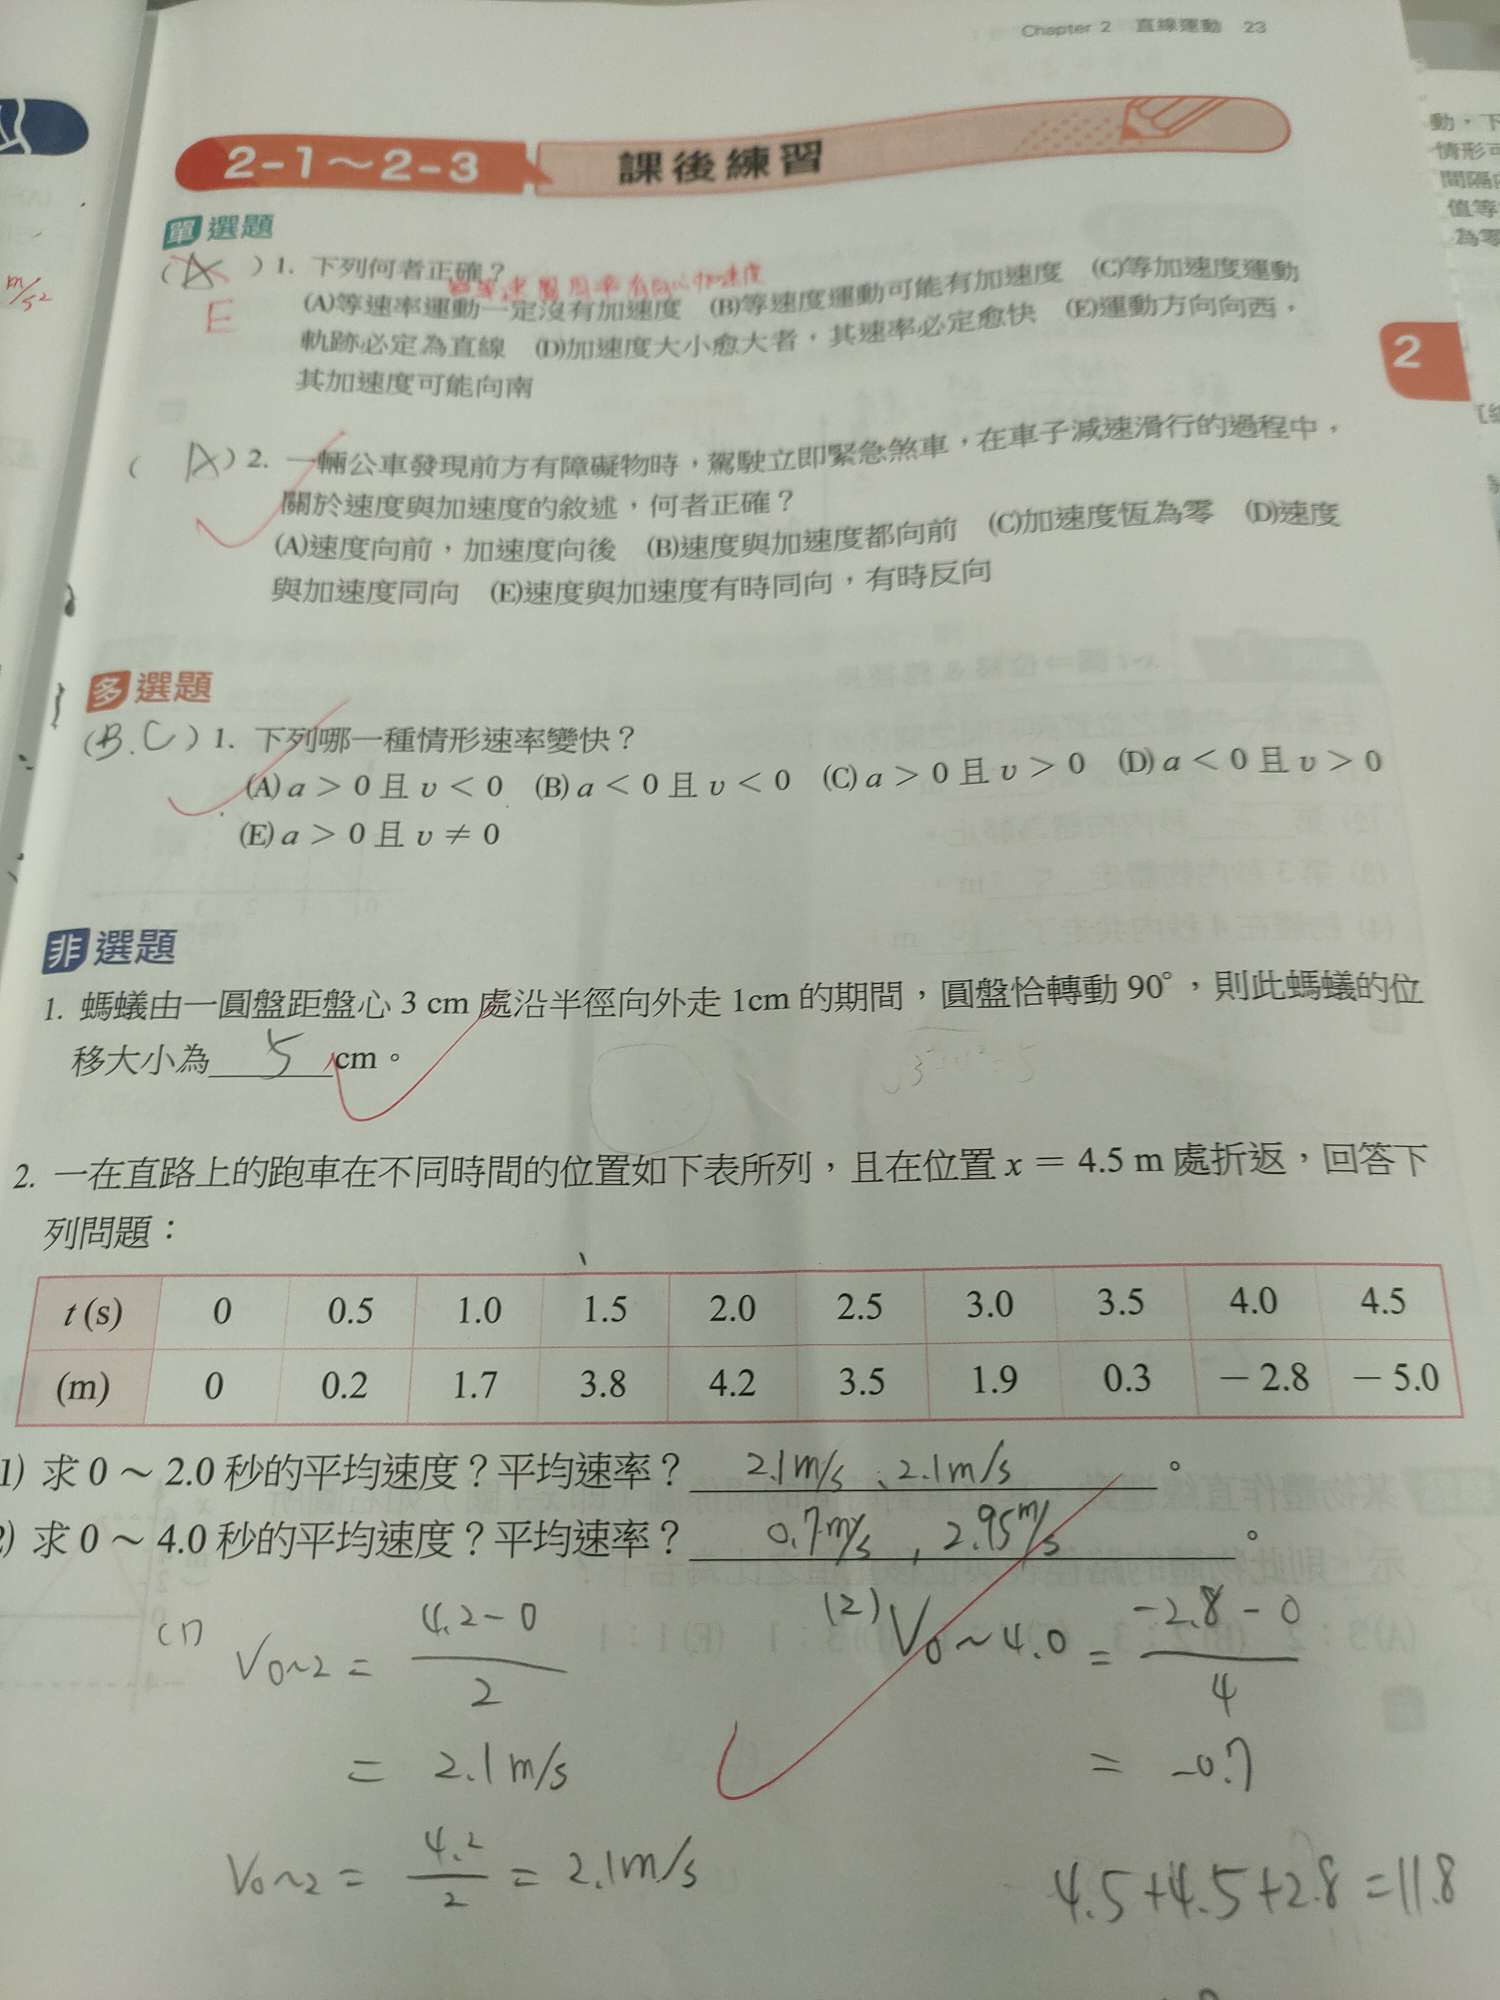 Chapter 2 直線運動 23
2-1～2-3 課後練習
單選題
m/s²
(A) 1. 下列何者正確？
E
(A)等速率運動一定沒有加速度 (B)等速度運動可能有加速度 (C)等加速度運動
軌跡必定為直線 (D)加速度大小愈大者，其速率必定愈快 (E)運動方向向西，
其加速度可能向南
( A ) 2. 一輛公車發現前方有障礙物時，駕駛立即緊急煞車，在車子減速滑行的過程中，
關於速度與加速度的敘述，何者正確？
(A)速度向前，加速度向後 (B)速度與加速度都向前 (C)加速度恆為零 (D)速度
與加速度同向 (E)速度與加速度有時同向，有時反向
2
多選題
(B.C) 1. 下列哪一種情形速率變快？
(A) a > 0 且 v < 0 (B) a < 0 且 v < 0 (C) a > 0 且 v > 0 (D) a < 0 且 v > 0
(E) a > 0 且 v ≠ 0
非選題
1. 螞蟻由一圓盤距盤心 3 cm 處沿半徑向外走 1cm 的期間，圓盤恰轉動 90°，則此螞蟻的位
移大小為 5 cm。
2. 一在直路上的跑車在不同時間的位置如下表所列，且在位置 x = 4.5 m 處折返，回答下
列問題：
t (s) 0 0.5 1.0 1.5 2.0 2.5 3.0 3.5 4.0 4.5
(m) 0 0.2 1.7 3.8 4.2 3.5 1.9 0.3 －2.8 －5.0
1) 求 0～2.0 秒的平均速度？平均速率？ 2.1m/s、2.1m/s 。
2) 求 0～4.0 秒的平均速度？平均速率？ 0.7m/s , 2.95m/s 。
(1) V0~2 = 4.2-0 / 2
= 2.1m/s
V0~2 = 4.2 / 2 = 2.1m/s
(2) V0~4.0 = -2.8-0 / 4
= -0.7
4.5+4.5+2.8=11.8